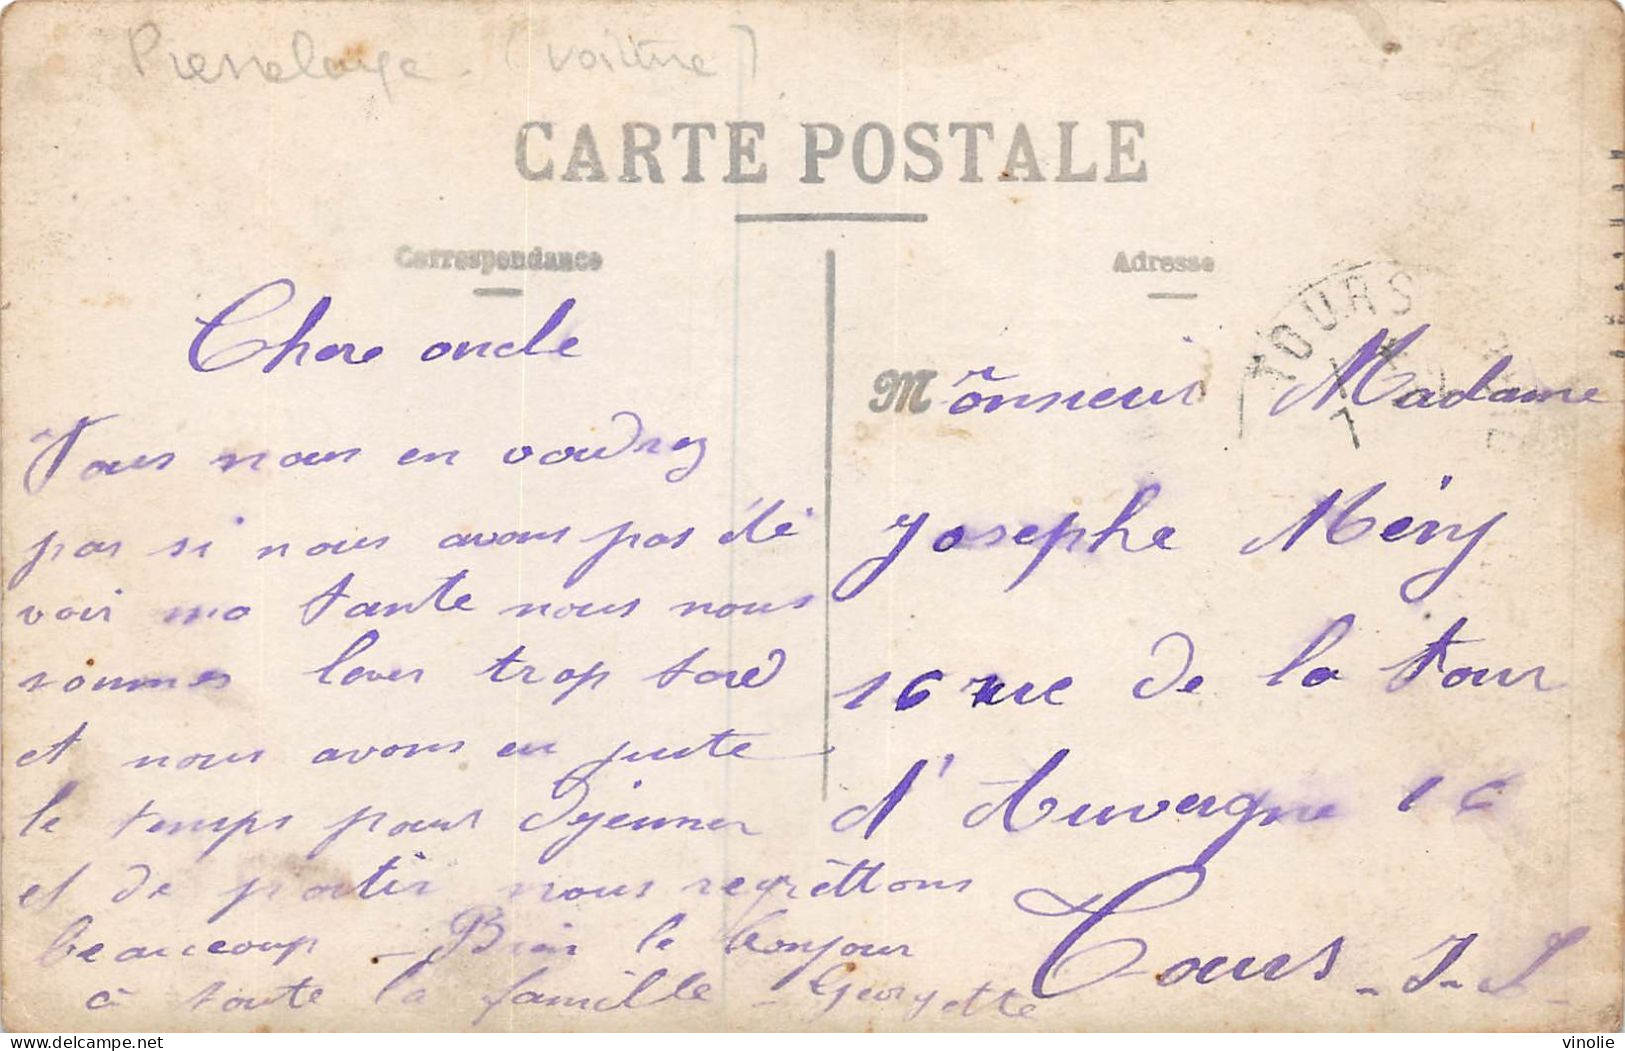 (voiture)
CARTE POSTALE
Correspondance
Adresse
TOURS
7
Chere oncle
Vous nous en voudrez
pas si nous avons pas été
voir ma tante nous nous
sommes lever trop tard
et nous avons eu juste
le temps pour déjeuner
et de partir nous regrèttons
beaucoup - Bien le bonjour
à toute la famille - Georgette
M onsieur Madame
Josephe Mery
16 rue de la tour
d'Auvergne 16
Tours - I - L -
vinolie